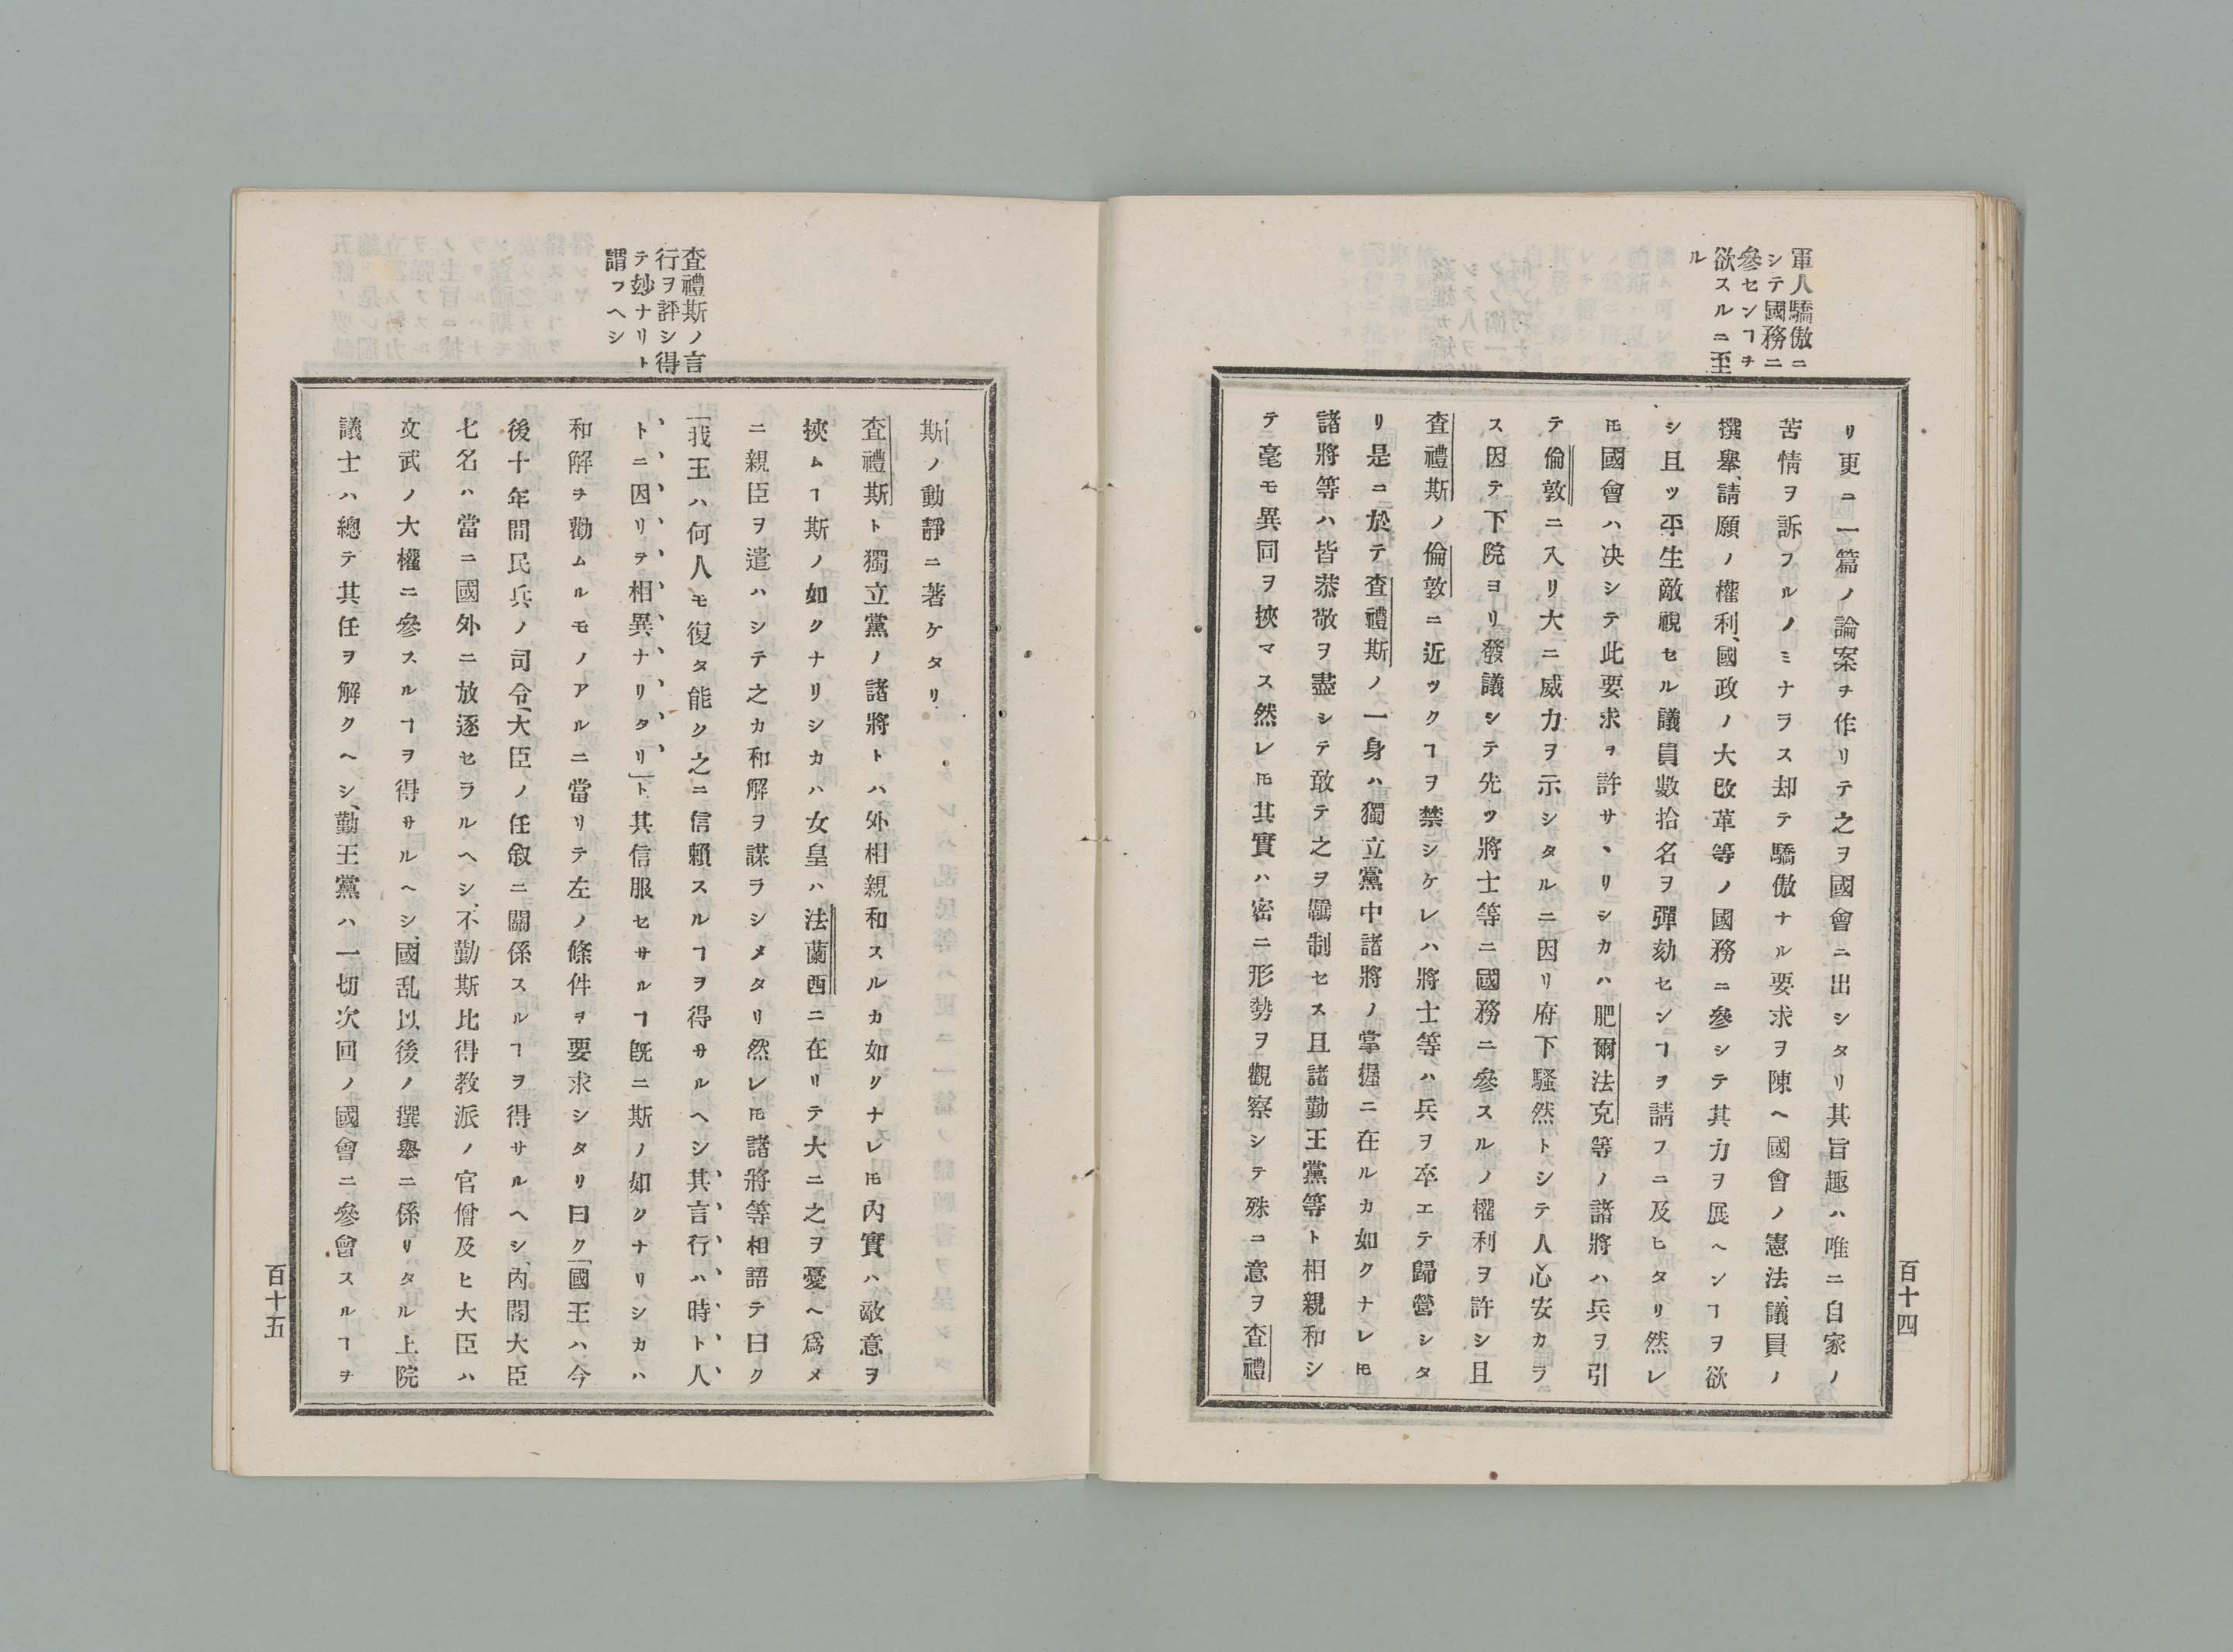 軍人驕傲ニ
シテ國務ニ
參センヿヲ
欲スルニ至
ル
リ更ニ一篇ノ論案ヲ作リテ之ヲ國會ニ出シタリ其旨趣ハ唯ニ自家ノ
苦情ヲ訴フルノミナラス却テ驕傲ナル要求ヲ陳ヘ國會ノ憲法、議員ノ
撰擧、請願ノ權利、國政ノ大改革等ノ國務ニ參シテ其力ヲ展ヘンヿヲ欲
シ且ツ平生敵視セル議員數拾名ヲ彈劾センヿヲ請フニ及ヒタリ然レ
𪜈國會ハ决シテ此要求ヲ許サヽリシカハ肥爾法克等ノ諸將ハ兵ヲ引
テ倫敦ニ入リ大ニ威力ヲ示シタルニ因リ府下騷然トシテ人心安カラ
ス因テ下院ヨリ發議シテ先ツ將士等ニ國務ニ參スルノ權利ヲ許シ且
査禮斯ノ倫敦ニ近ツクヿヲ禁シケレハ將士等ハ兵ヲ卒エテ歸營シタ
リ是ニ於テ査禮斯ノ一身ハ獨立黨中諸將ノ掌握ニ在ルカ如クナレ𪜈
諸將等ハ皆恭敬ヲ盡シテ敢テ之ヲ羈制セス且諸勤王黨等ト相親和シ
テ毫モ異同ヲ挾マス然レ𪜈其實ハ密ニ形勢ヲ觀察シテ殊ニ意ヲ査禮
百十四
査禮斯ノ言
行ヲ評シ得
テ玅ナリト
謂フヘシ
斯ノ動靜ニ著ケタリ
査禮斯ト獨立黨ノ諸將トハ外相親和スルカ如クナレ𪜈內實ハ敵意ヲ
挾ムヿ斯ノ如クナリシカハ女皇ハ法蘭西ニ在リテ大ニ之ヲ憂ヘ爲メ
ニ親臣ヲ遣ハシテ之カ和解ヲ謀ラシメタリ然レ𪜈諸將等相語テ曰ク
「我王ハ何人モ復タ能ク之ニ信賴スルヿヲ得サルヘシ其言行ハ時ト人
トニ因リヲ相異ナリタリ」ト其信服セサルヿ旣ニ斯ノ如クナリシカハ
和解ヲ勸ムルモノアルニ當リテ左ノ條件ヲ要求シタリ曰ク「國王ハ今
後十年間民兵ノ司令、大臣ノ任敘ニ關係スルヿヲ得サルヘシ、內閣大臣
七名ハ當ニ國外ニ放逐セラルヘシ、不勤斯比得敎派ノ官僧及ヒ大臣ハ
文武ノ大權ニ參スルヿヲ得サルヘシ、國乱以後ノ撰擧ニ係リタル上院
議士ハ總テ其任ヲ解クヘシ、勤王黨ハ一切次回ノ國會ニ參會スルヿヲ
百十五